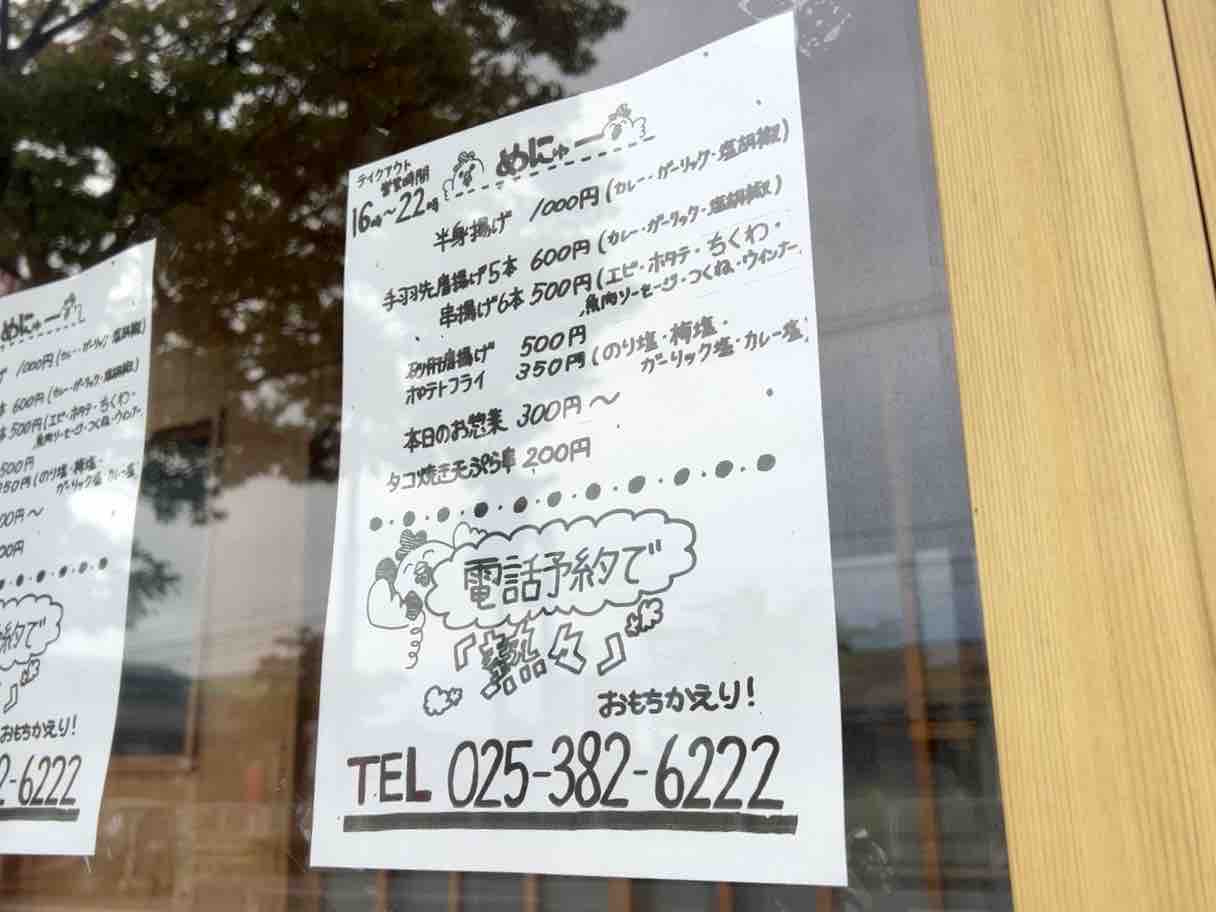 めにゅー
テイクアウト
営業時間
16時~22時
半身揚げ 1000円(カレー・ガーリック・塩胡椒)
手羽先唐揚げ5本 600円(カレー・ガーリック・塩胡椒)
串揚げ6本 500円(エビ・ホタテ・ちくわ・
魚肉ソーセージ・つくね・ウィンナー
砂肝唐揚げ 500円
ポテトフライ 350円(のり塩・梅塩・
ガーリック塩・カレー塩)
本日のお惣菜 300円~
タコ焼き天ぷら串 200円
電話予約で
「熱々」
おもちかえり!
TEL 025-382-6222
めにゅー
1000円(カレー・ガーリック・塩胡椒)
本 600円(カレー・ガーリック・塩胡椒)
本 500円(エビ・ホタテ・ちくわ・
魚肉ソーセージ・つくね・ウィンナー
500円
350円(のり塩・梅塩・
ガーリック塩・カレー塩
00円~
00円
約で
おもちかえり!
2-6222